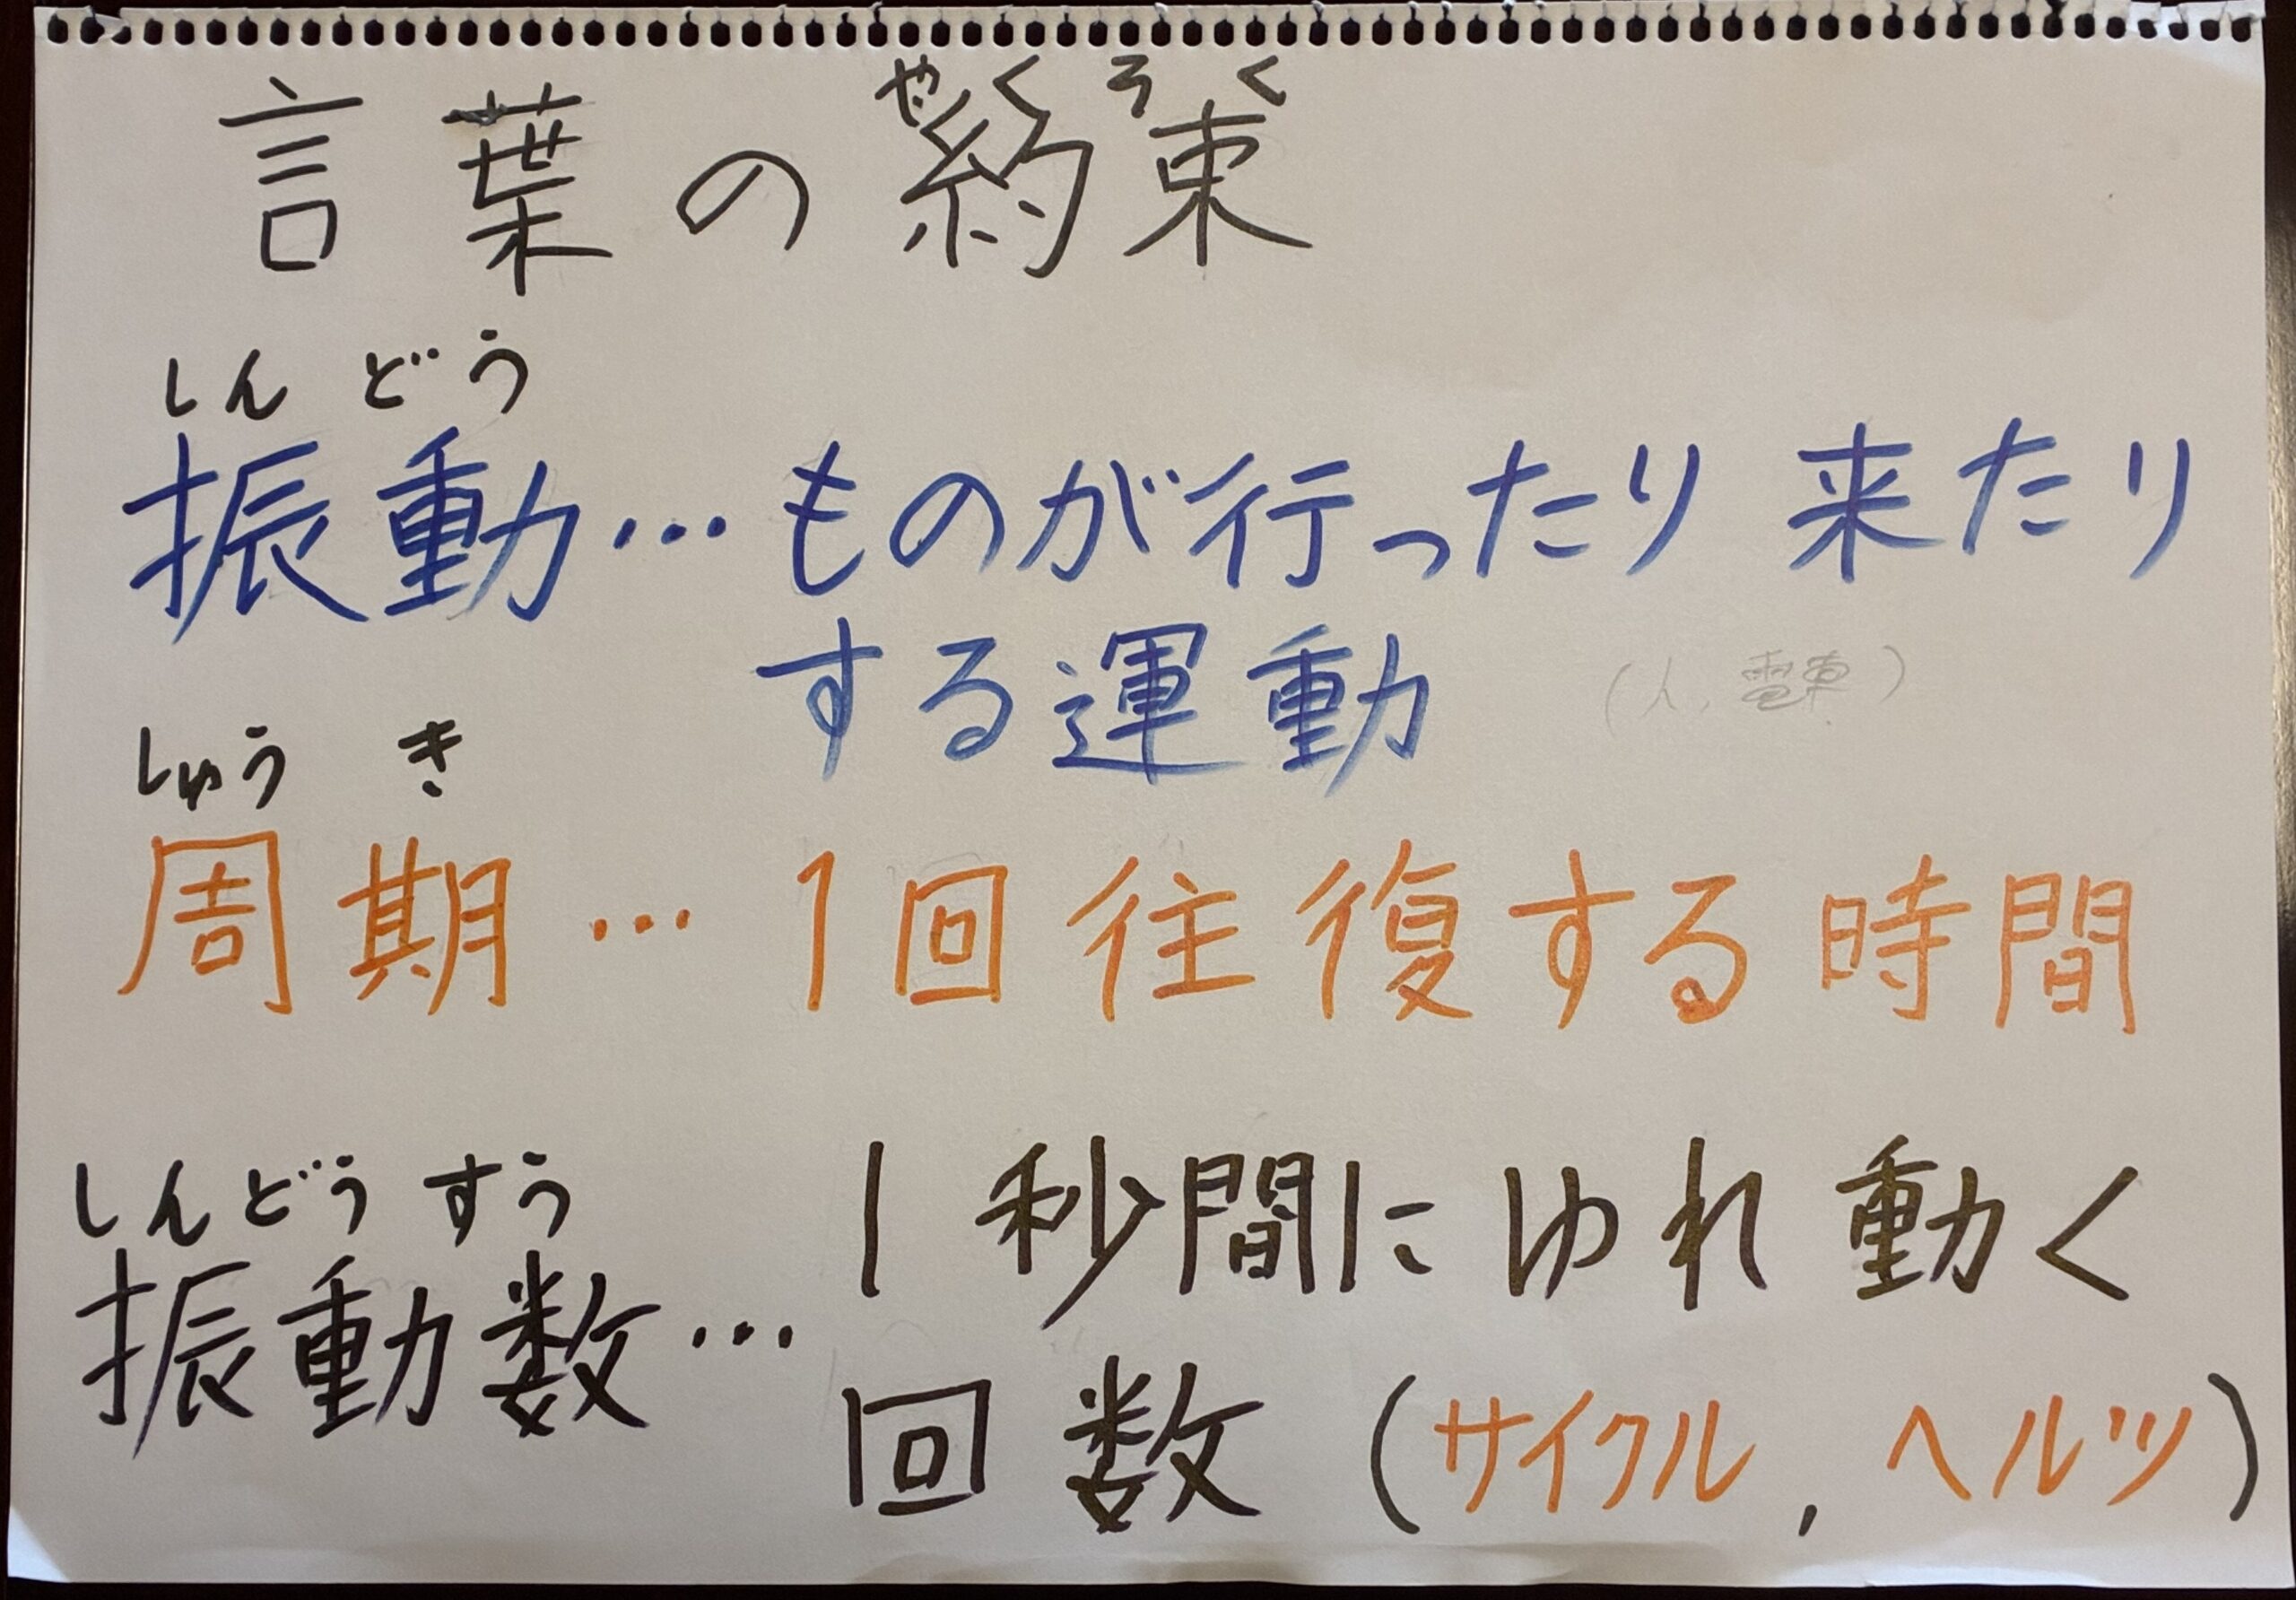 やくそく
言葉の約束
しんどう
振動…ものが行ったり来たり
する運動 (人、電車)
しゅうき
周期…1回往復する時間
しんどうすう
振動数…1秒間にゆれ動く
回数(サイクル,ヘルツ)